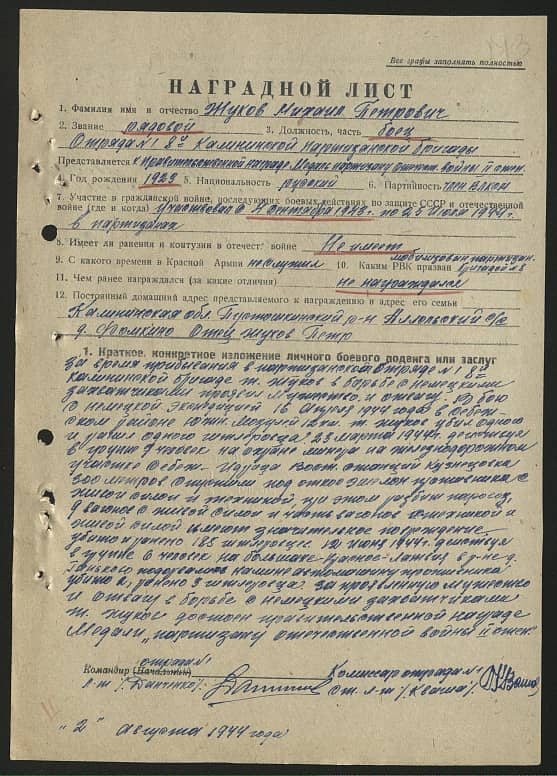 Все графы заполнять полностью
НАГРАДНОЙ ЛИСТ
1. Фамилия имя и отчество Жуков Михаил Петрович
2. Звание рядовой 3. Должность, часть боец
Отряда №1 8й Калининской Партизанской бригады
Представляется к Правительственной награде Медаль партизану отечест. войны II степ.
4. Год рождения 1929 5. Национальность русский 6. Партийность член ВЛКСМ
7. Участие в гражданской войне, последующих боевых действиях по защите СССР и отечественной
войне (где и когда) Участвовал с 4 сентября 1943 г. по 25 июля 1944 г.
в партизанах
8. Имеет ли ранения и контузии в отечест. войне Не имеет
9. С какого времени в Красной Армии не служил 10. Каким РВК призван мобилизован партизан.
бригадой
11. Чем ранее награждался (за какие отличия) не награждался
12. Постоянный домашний адрес представляемого к награждению и адрес его семьи
Калининская обл. Пустошкинский р-н Аллольский с/с
д. Фомкино Отец Жуков Петр
1. Краткое, конкретное изложение личного боевого подвига или заслуг
За время пребывания в партизанском отряде №1 8й
калининской бригаде т. Жуков в борьбе с немецкими
захватчиками проявил мужество и отвагу. В бою
с немецкой экспедицией 16 апреля 1944 года в Себеж-
ском районе т. Жуков убил одного
и ранил одного гитлеровца. 23 марта 1944 г. действуя
в группе 9 человек на охране минера на железнодорожном
участке Себеж - Идрица Вост. станции Кузнецовка
300 метров спустили под откос эшелон противника с
живой силой и техникой при этом разбит паровоз,
с живой силой и часть вагонов с техникой и
живой силой имеют значительное повреждение
убито и ранено 185 гитлеровцев. 12 июня 1944 г. действуя
в группе 6 человек на большаке - Латвия в р-не д.
подорвал на мине автомашину противника
убито 2, ранено 3 гитлеровца. За проявленную мужество
и отвагу в борьбе с немецкими захватчиками
т. Жуков достоин правительственной награды
Медали "партизану отечественной войны II степ."
отряда №1
Командир (Начальник) Комиссар отряда №1
л-т /Данченко/ ст. л-т /Кваша/
"2" Августа 1944 года